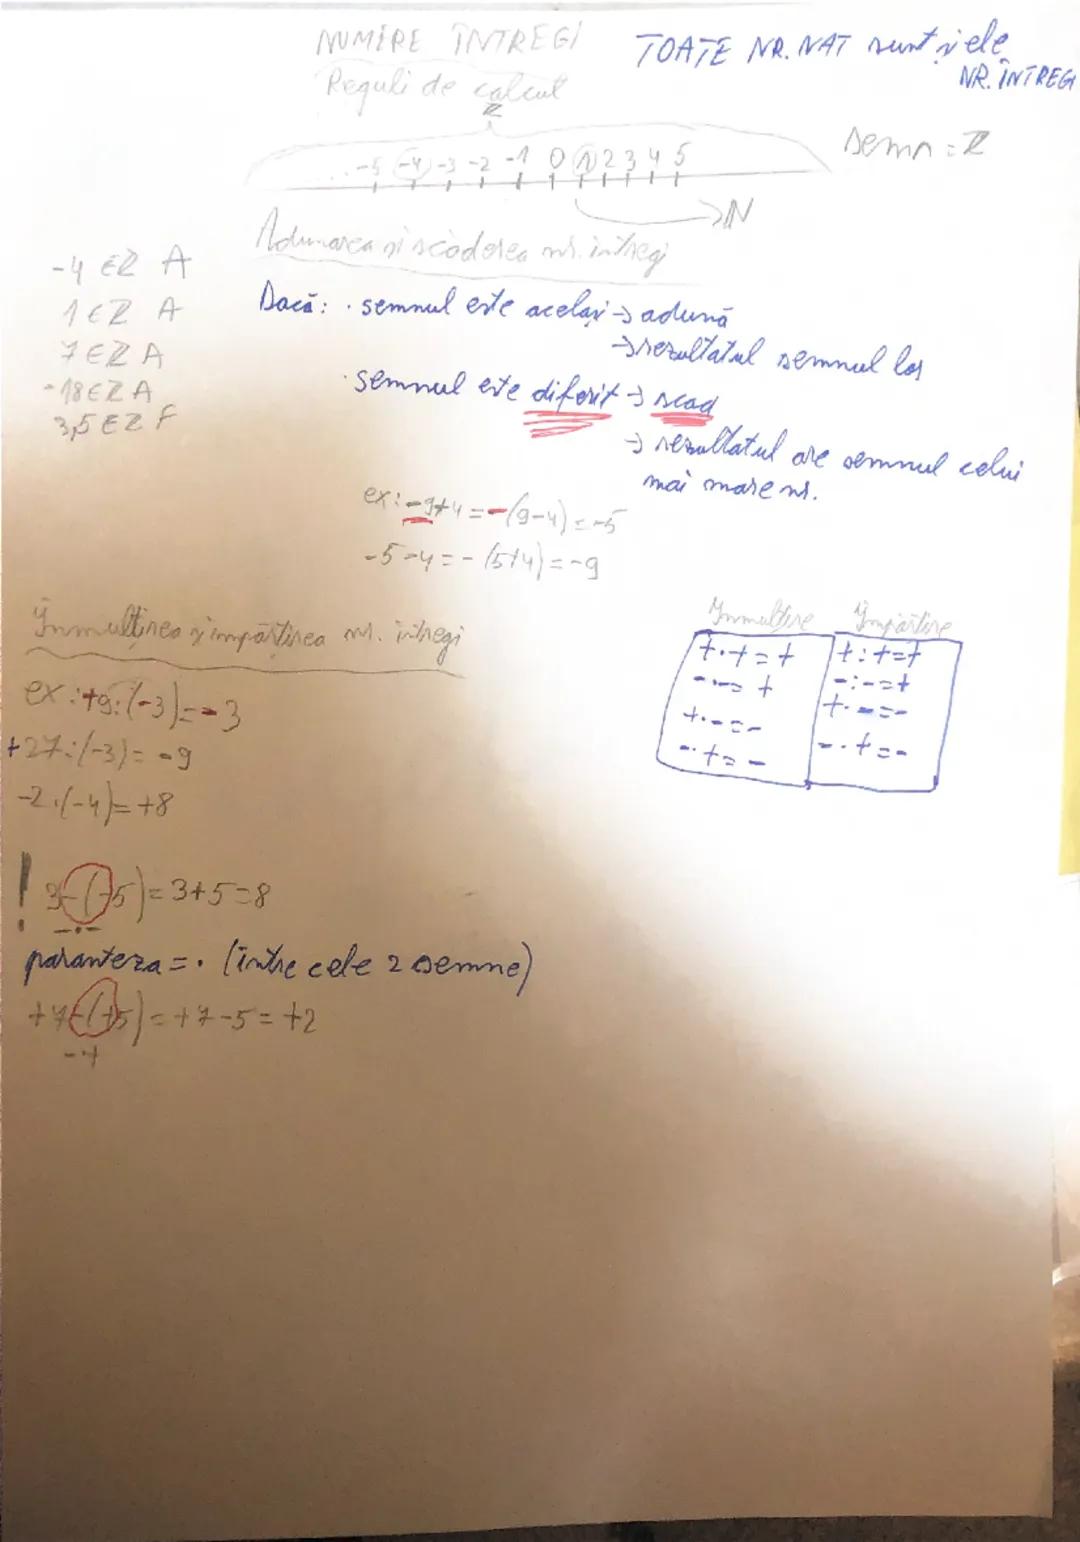 NUMERE ÎNTREGI
Reguli de calcul
TOATE NR. NAT sunt și ele
NR. ÎNTREGI
ℤ
semn = ℤ
...-5 -4 -3 -2 -1 0 1 2 3 4 5
→ℕ
Adunarea și scăderea nr. întregi
-4 ∈ ℤ A
1 ∈ ℤ A
7 ∈ ℤ A
-18 ∈ ℤ A
3,5 ∈ ℤ F
Dacă: · semnul este același → adună
→ rezultatul semnul lor
· semnul este diferit → scad
→ rezultatul are semnul celui
mai mare nr.
ex: -9+4 = -(9-4) = -5
-5-4 = -(5+4) = -9
Înmulțirea și împărțirea nr. întregi
ex: +9:(-3) = -3
+27:(-3) = -9
-2·(-4) = +8
Înmulțire Împărțire
+·+=+ +:+=+
-·-=+ -:-=+
+·-=- +·-=-
-·+=- -·+=-
! 3-(-5) = 3+5=8
-·-
paranteza = · (între cele 2 semne)
+7-(+5) = +7-5 = +2
-+